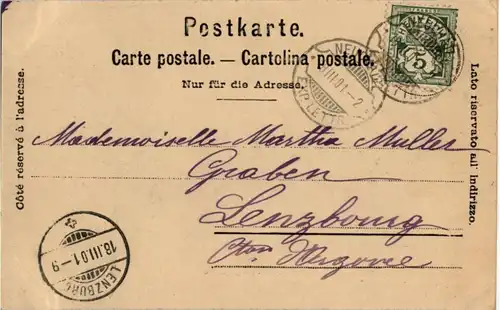 Postkarte.
Carte postale. — Cartolina postale.
Nur für die Adresse.
Côté réservé à l'adresse.
Lato riservato all' indirizzo.
Mademoiselle Martha Muller
Graben
Lenzbourg
Cton d'Argovie
5
III.01.–2
EXP. LETTR.
18.III.01.–9
LENZBURG